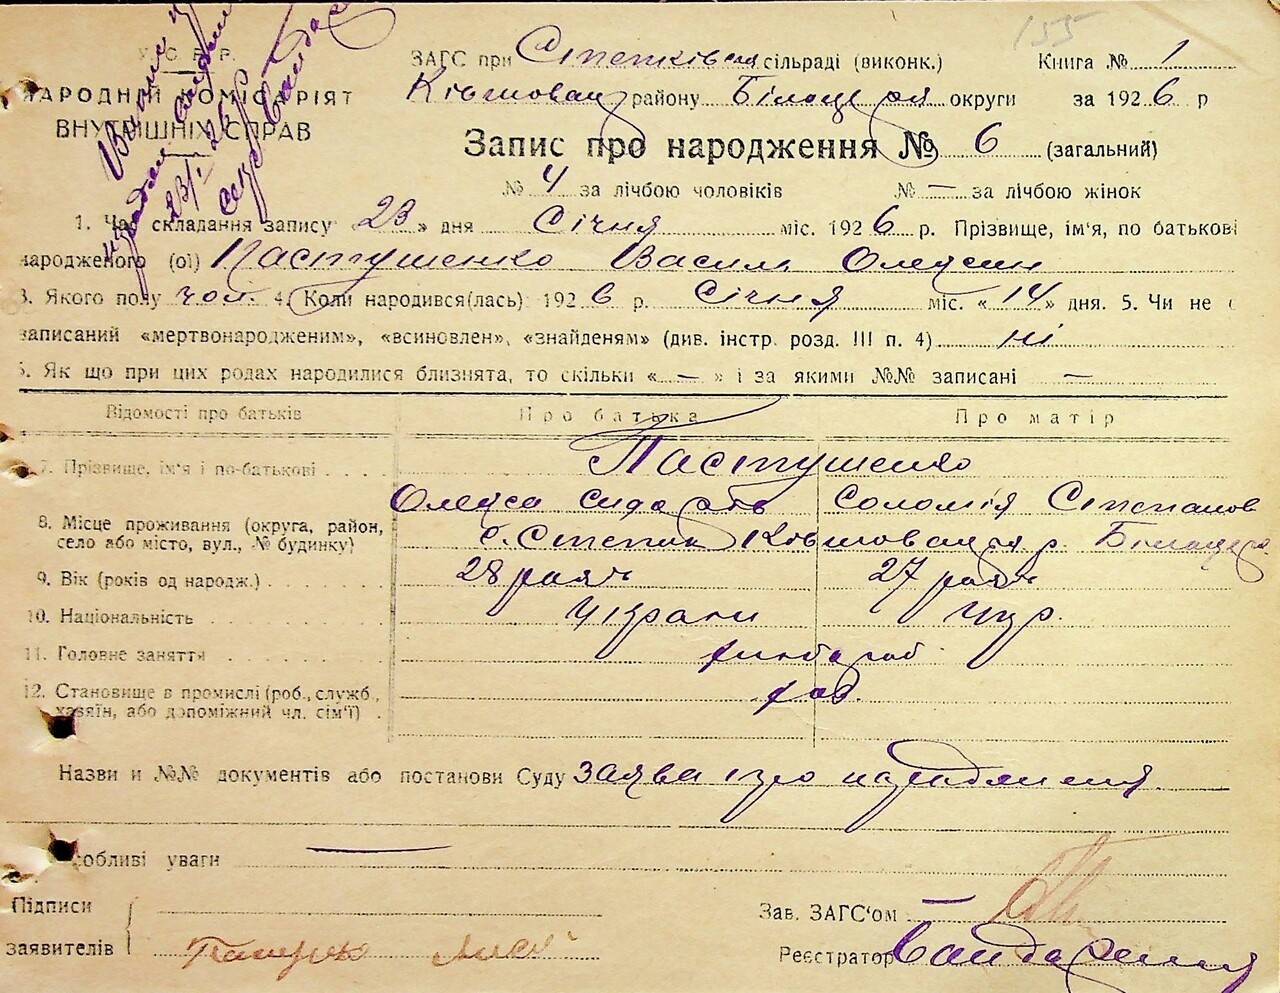 155
У.С.Р.Р.
НАРОДНІЙ КОМІСАРІЯТ
ВНУТІШНІХ СПРАВ
23/I 26 р.
ЗАГС при Степківськ сільраді (виконк.) Книга № 1
Ківшовацьк району Білоцерк округи за 1926 р
Запис про народження № 6 (загальний)
№ 4 за лічбою чоловіків № — за лічбою жінок
1. Час складання запису «23» дня Січня міс. 1926 р. Прізвище, ім'я, по батькові
народженого (ої) Пастушенко Василь Олексин
3. Якого полу чол. 4. Коли народився(лась) 1926 р. Січня міс. «14» дня. 5. Чи не є
записаний «мертвонародженим», «всиновлен», «знайденям» (див. інстр. розд. III п. 4) ні
6. Як що при цих родах народилися близнята, то скільки « — » і за якими №№ записані —
Відомості про батьків Про батька Про матір
7. Прізвище, ім'я і по-батькові Пастушенко
Олекса Сидор Соломія Степанов
8. Місце проживання (округа, район,
село або місто, вул., № будинку) с. Степки Ківшовацьк р. Білоцерк
9. Вік (років од народж.) 28 27
10. Національність Україн Укр.
11. Головне заняття хлібороб
12. Становище в промислі (роб., служб.,
хазяїн, або допоміжний чл. сім'ї)
Назви и №№ документів або постанови Суду Заява про народження
Особливі уваги —
Підписи
заявителів
Зав. ЗАГС'ом
Реєстратор